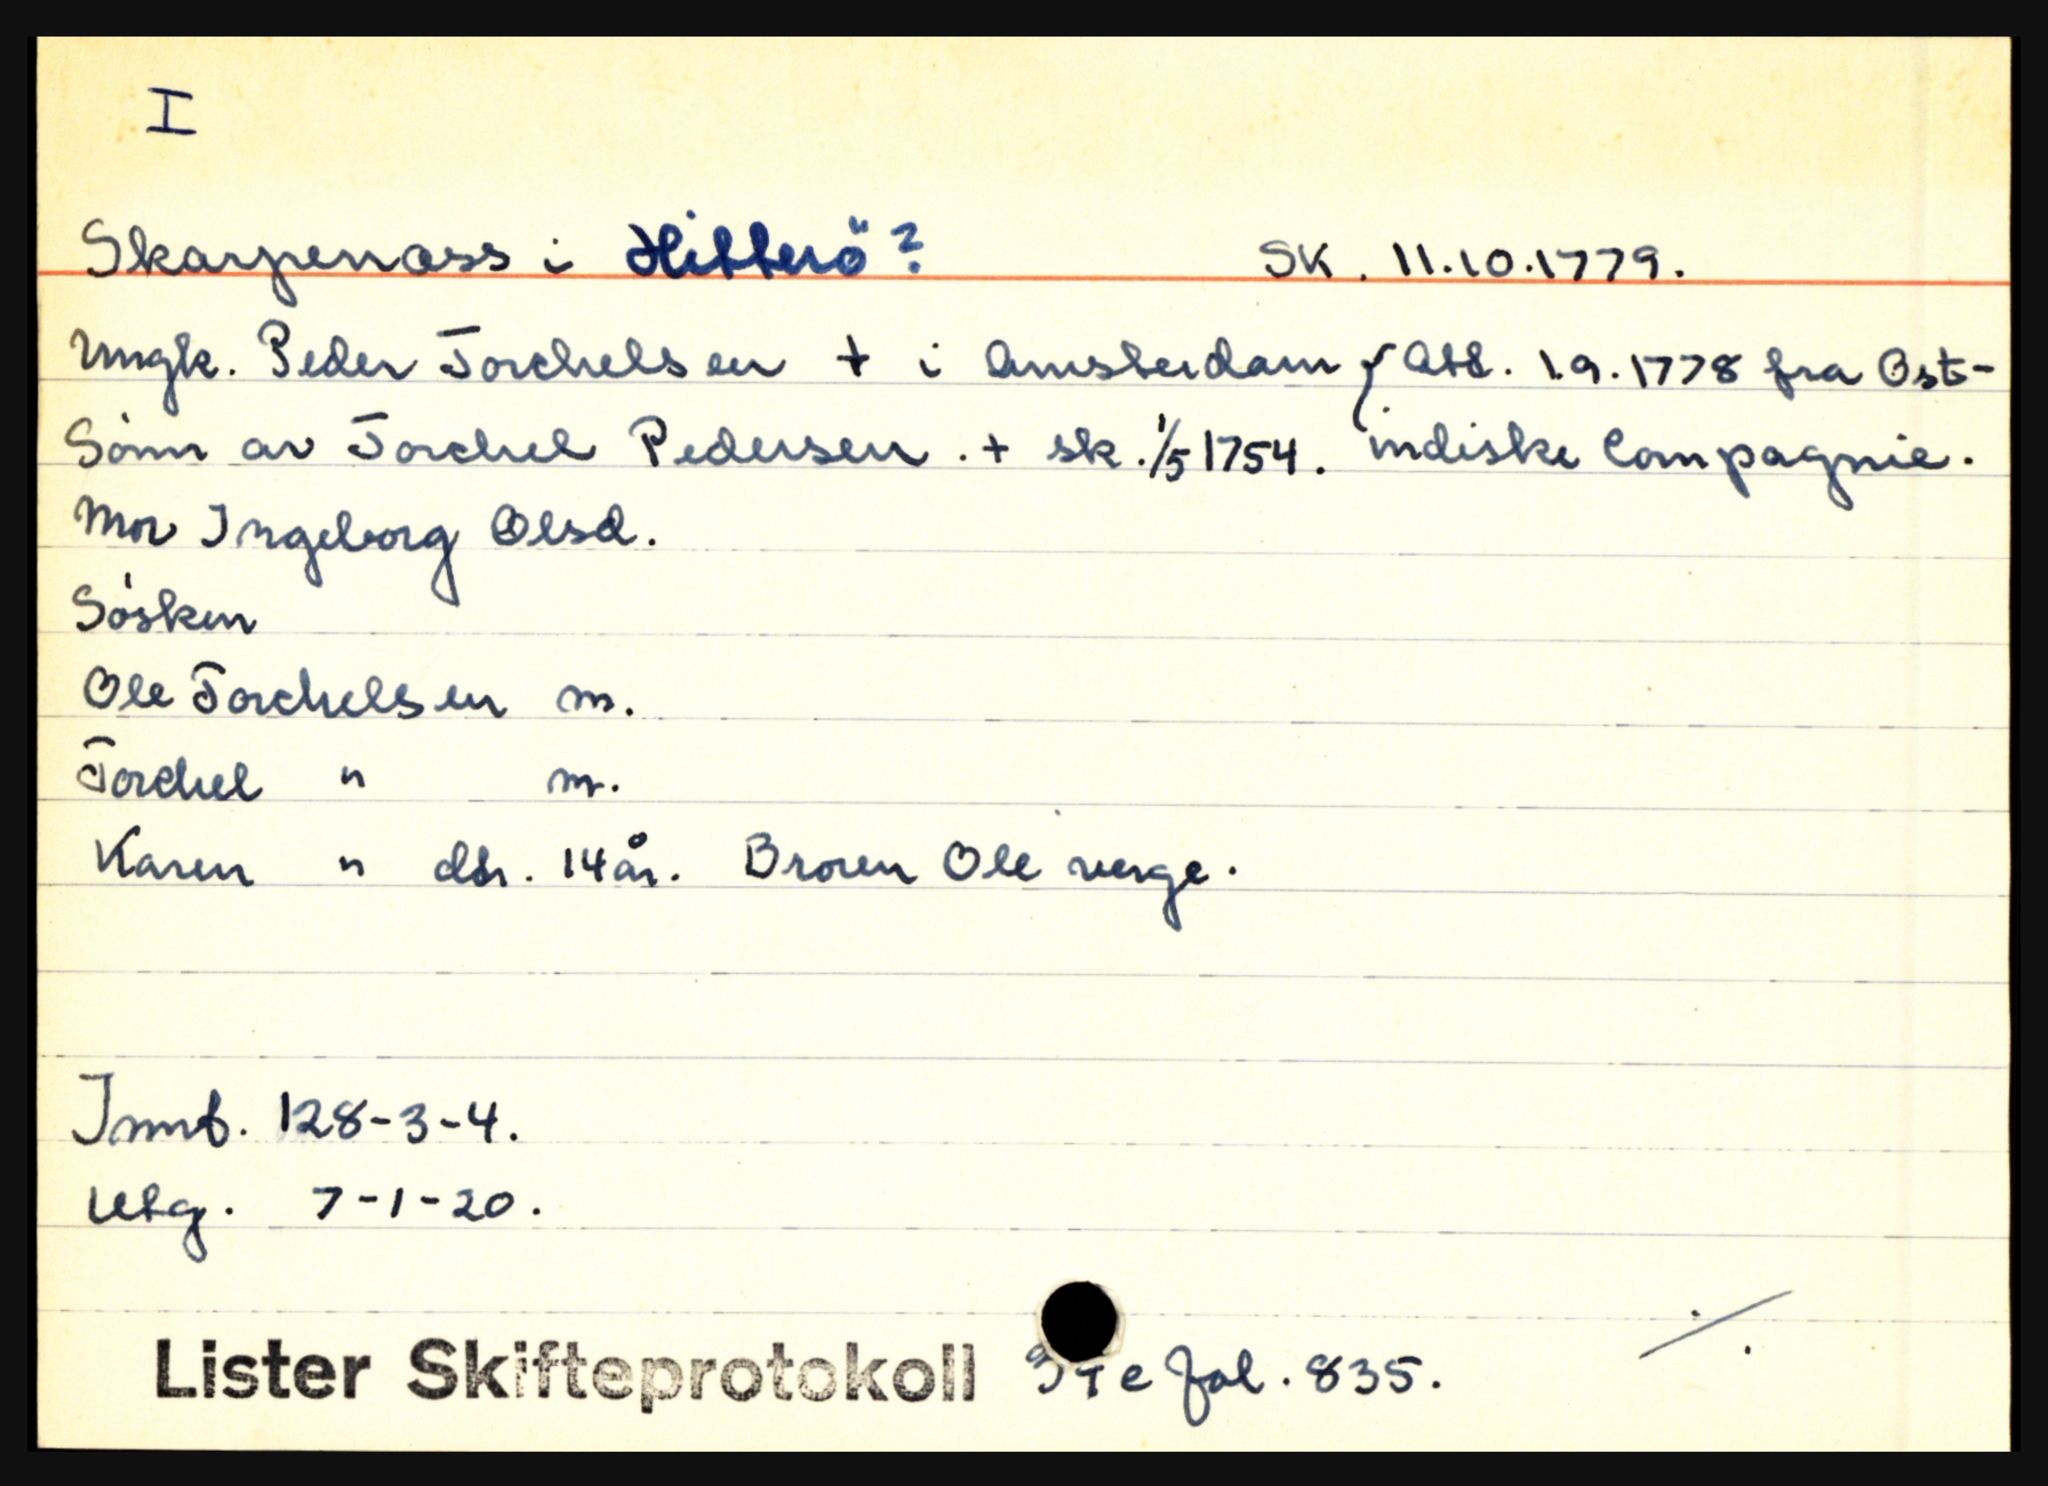 I
Skarpenæss i Hitterö? SK. 11.10.1779.
Ungk. Peder Torchelsen + i Amsterdam { Att. 1.9.1778 fra Ost-
Sønn av Torchel Pedersen. + sk. 1/5 1754. indiske Compagnie.
Mor Ingeborg Olsd.
Søsken
Ole Torchelsen m.
Torchel " m.
Karen " dtr. 14 år. Broren Ole verge.
Innt. 128-3-4.
Utg. 7-1-20.
Lister Skifteprotokoll e fol. 835.